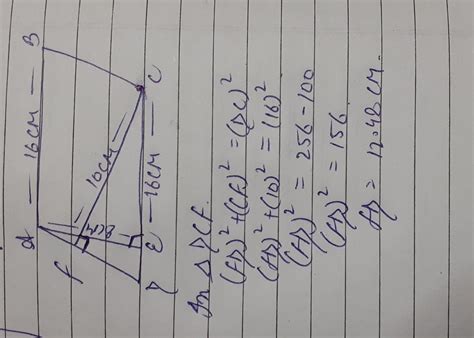 A — 16CM — B
10CM
F
D E — 16CM — C
In △ DCF
(FD)² + (CF)² = (DC)²
(FD)² + (10)² = (16)²
(FD)² = 256 - 100
(FD)² = 156
FD = 12.48 CM.